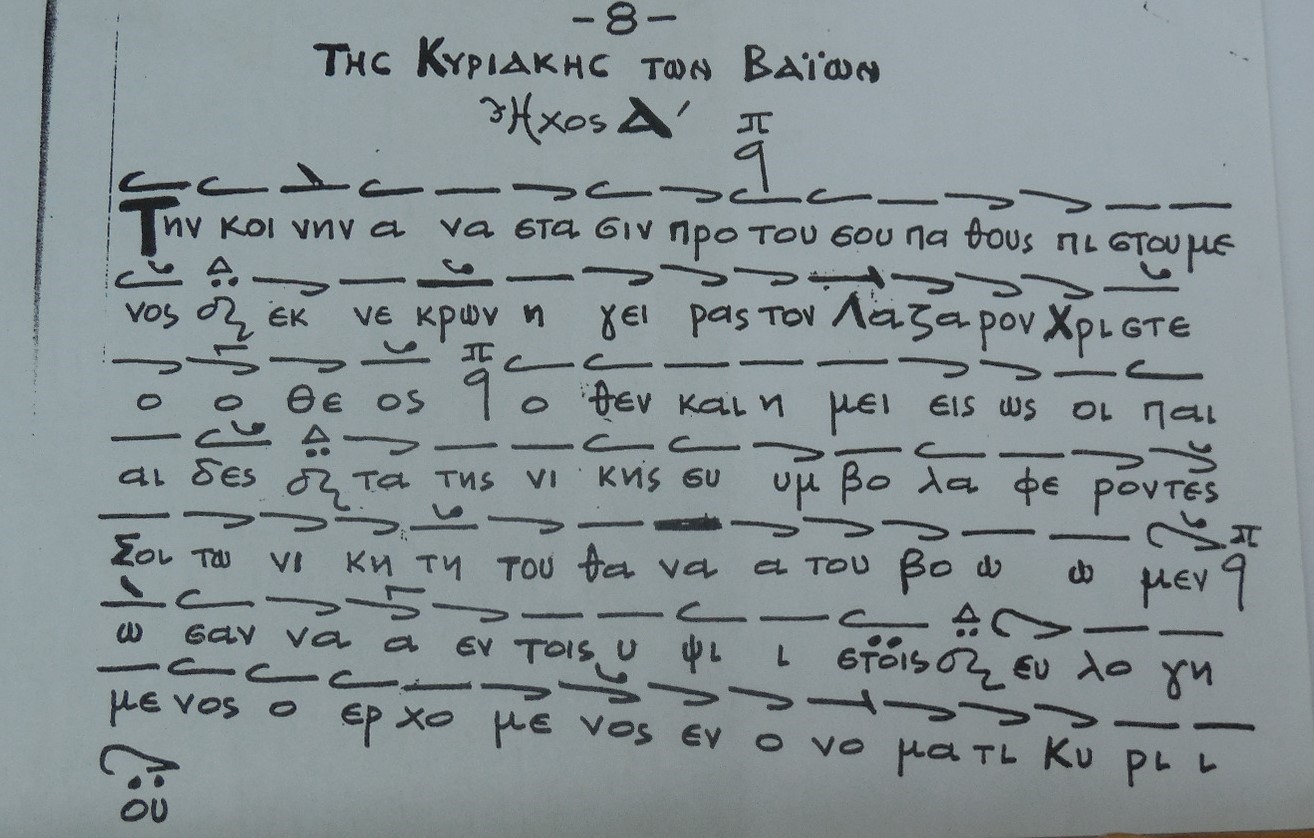 -8-
ΤΗς ΚΥΡΙΑΚΗς ΤωΝ ΒΑΪωΝ
Ἦχος Δ΄ π q
Την κοι νην α να στα σιν προ του σου πα θους πι στου με
νος Δ εκ νε κρων η γει ρας τον Λα ζα ρον Χρι στε
ο ο θε ος π q ο θεν και η μει εις ως οι παι
αι δες Δ τα της νι κης συ υμ βο λα φε ροντες
Σοι τω νι κη τη του θα να α του βο ω ω μεν π q
ω σαν να α εν τοις υ ψι ι στοις Δ ευ λο γη
με νος ο ερ χο με νος εν ο νο μα τι Κυ ρι ι
ου